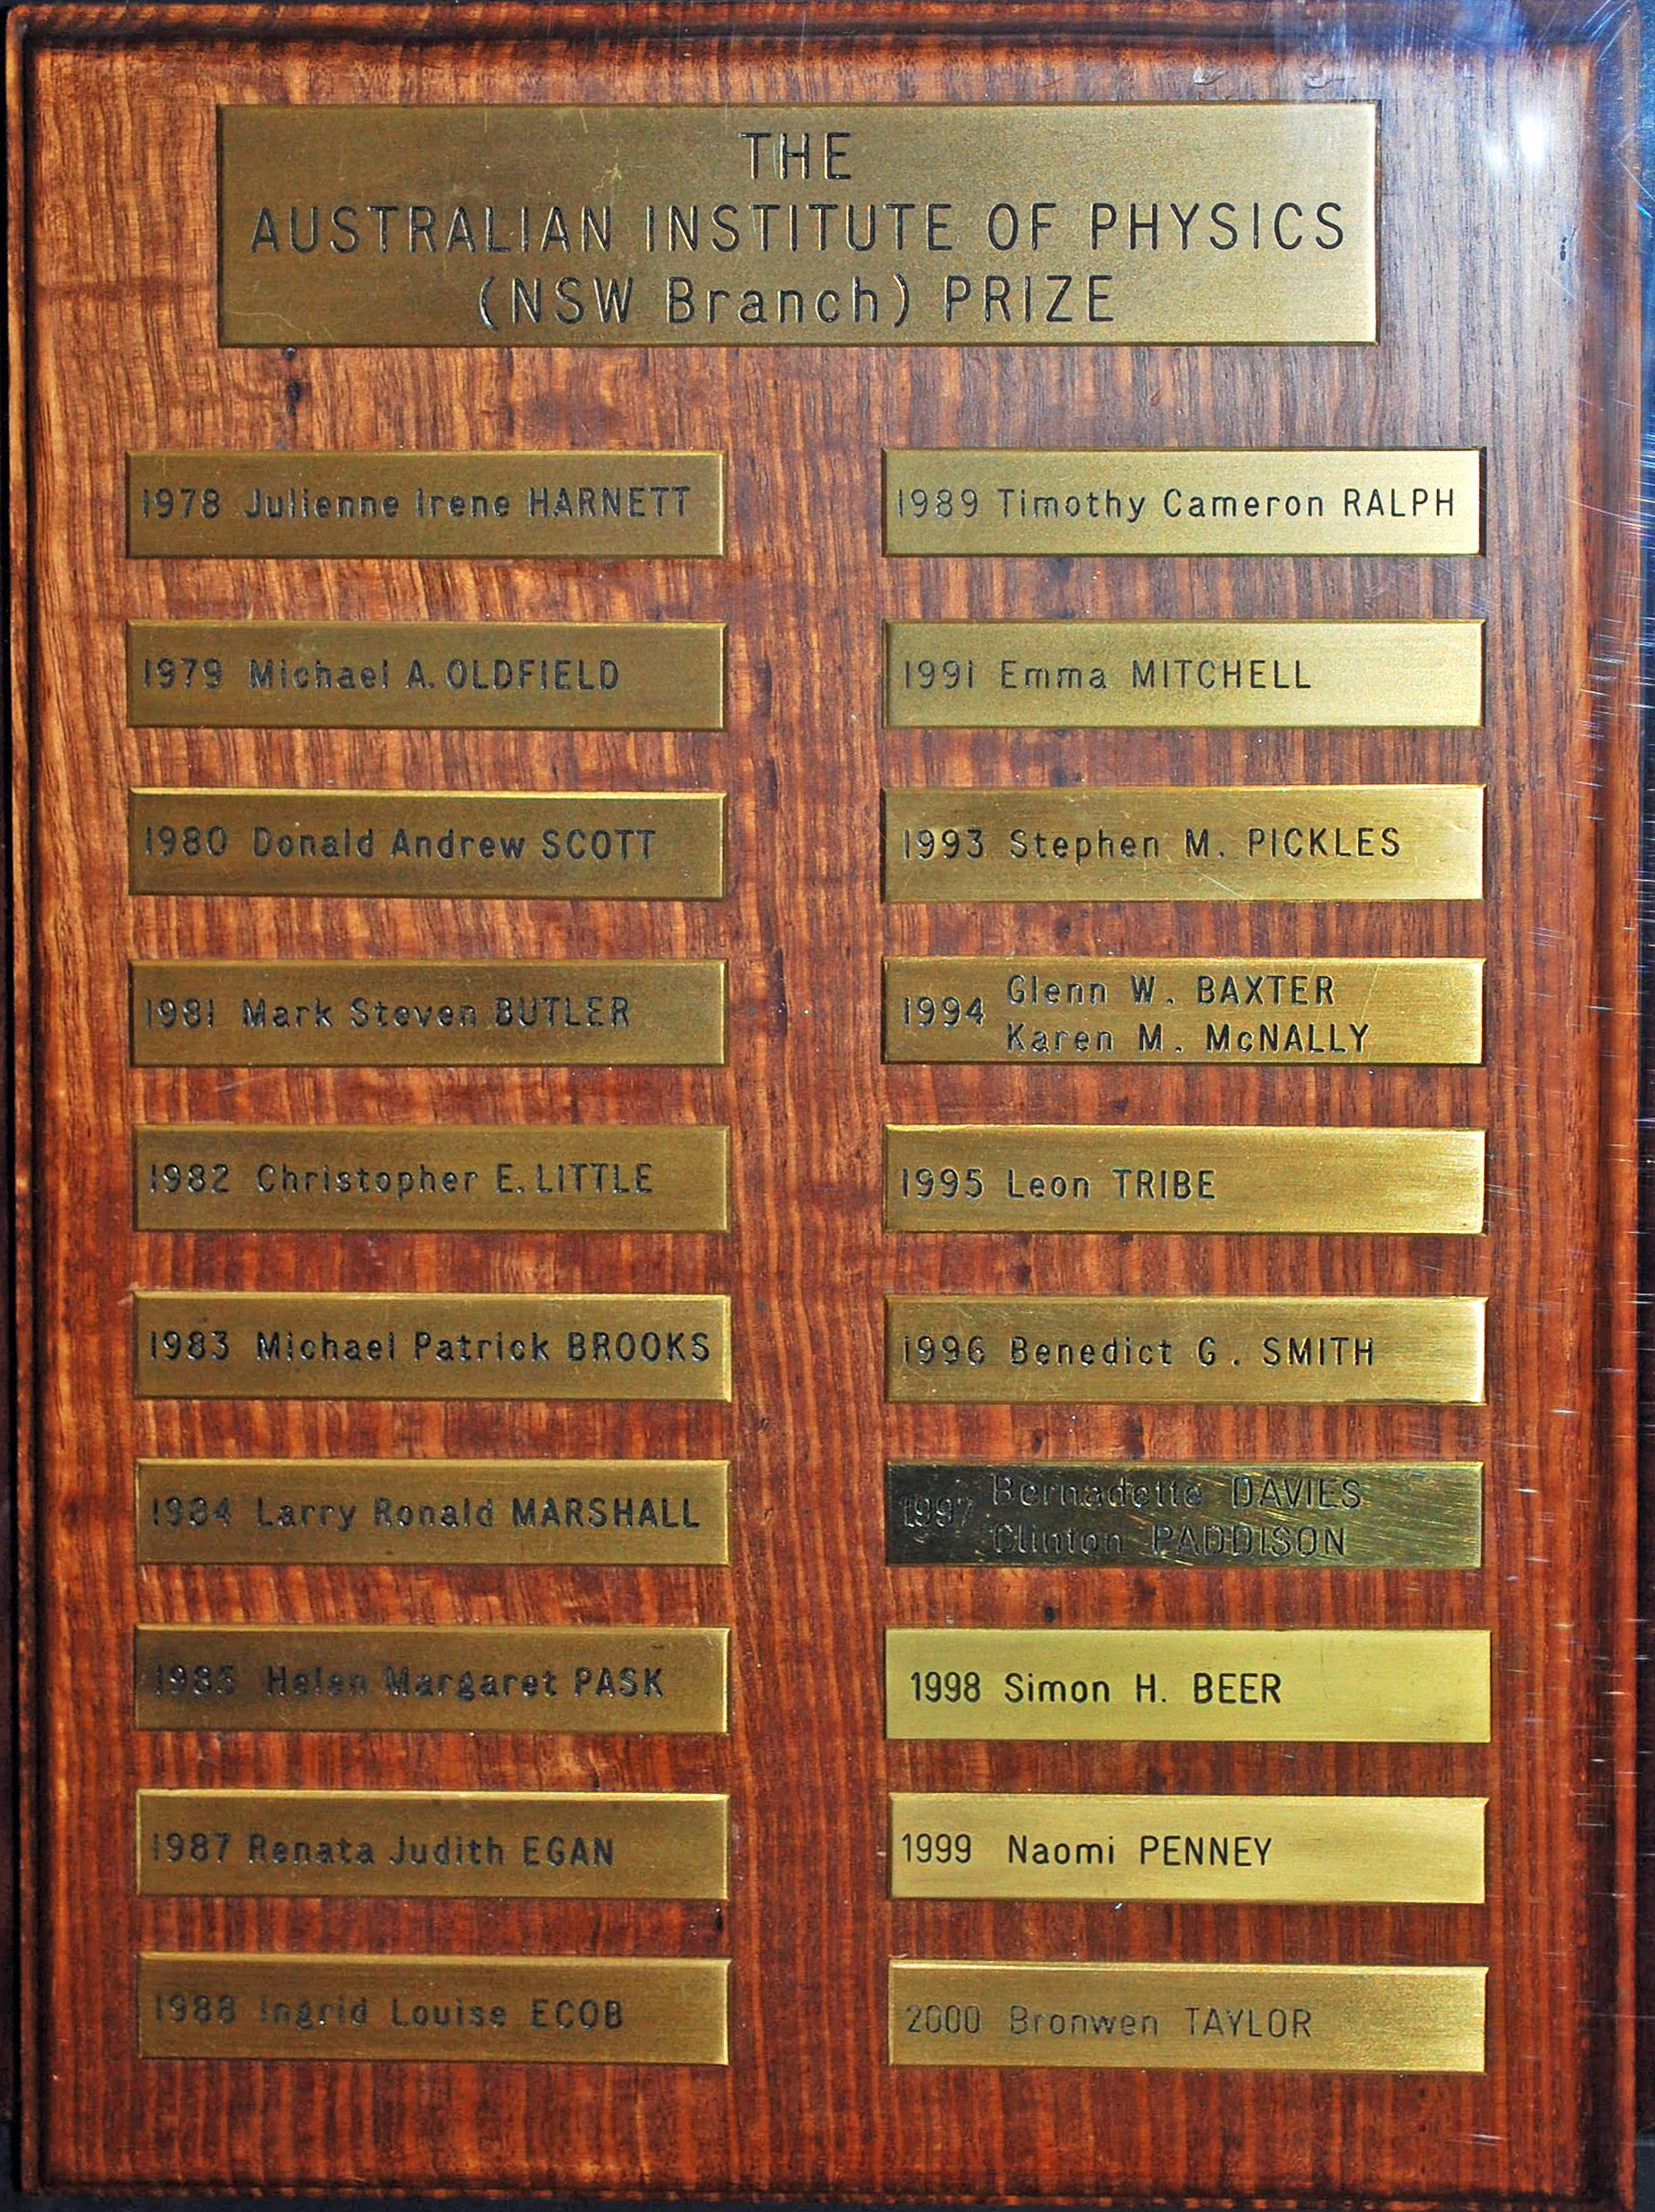 THE
AUSTRALIAN INSTITUTE OF PHYSICS
(NSW Branch) PRIZE
1978 Julienne Irene HARNETT
1979 Michael A. OLDFIELD
1980 Donald Andrew SCOTT
1981 Mark Steven BUTLER
1982 Christopher E. LITTLE
1983 Michael Patrick BROOKS
1984 Larry Ronald MARSHALL
1985 Helen Margaret PASK
1987 Renata Judith EGAN
1988 Ingrid Louise ECOB
1989 Timothy Cameron RALPH
1991 Emma MITCHELL
1993 Stephen M. PICKLES
1994 Glenn W. BAXTER
Karen M. McNALLY
1995 Leon TRIBE
1996 Benedict G. SMITH
1997 Bernadette DAVIES
Clinton PADDISON
1998 Simon H. BEER
1999 Naomi PENNEY
2000 Bronwen TAYLOR